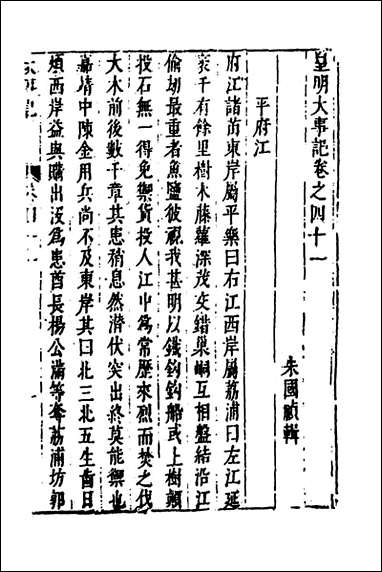 皇明大事記卷之四十一
朱國禎輯
平府江
府江諸苗東岸屬平樂曰右江西岸屬荔浦曰左江延
袤千有餘里樹木藤蘿深茂交錯巢峒互相盤結沿江
偷劫最重者魚鹽彼視我甚明以錢鈎鈎船或上樹顛
投石無一得免禦貨投人江中為常歷來烈而焚之伐
大木前後數千章其患稍息然潛伏突出終莫能禦也
嘉靖中陳金用兵尚不及東岸其曰北三北五生齒日
煩西岸益與購出沒為患酋長楊公滿等奪荔浦坊郭